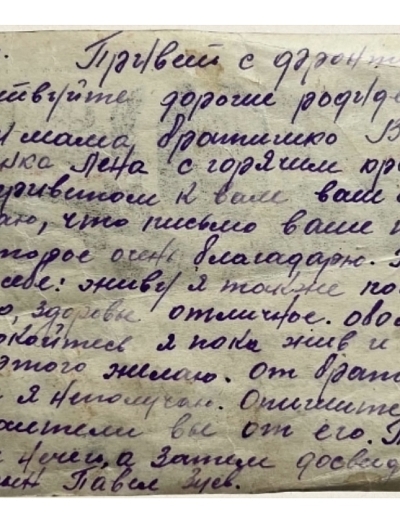 Привет с фронт
твуйте дорогие родите
и мама братишко В
нка Лена с горячим кра
приветом к вам ваш
аю, что письмо ваше п
оторое очень благодарю.
себе: живу я также по
о, здоровье отличное. обо
окойтесь я пока жив и
этого желаю. от брат
я неполучаю. Опишите
али вы от его. П
нечего, а затем досвид
Павел Зуев.